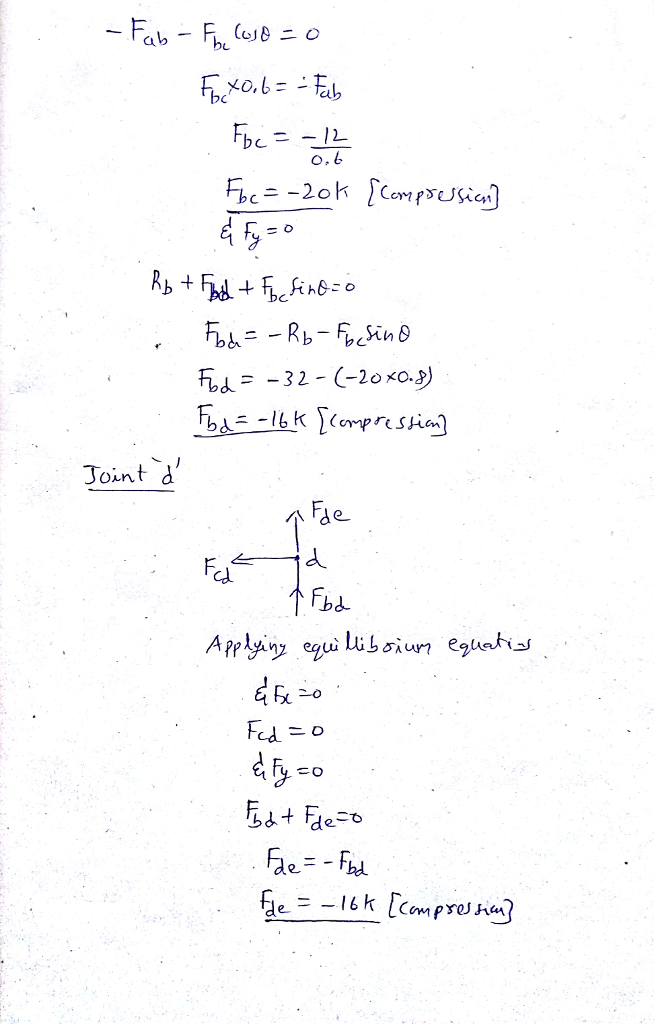 - Fab - Fbc Cosθ = 0
Fbc×0.6 = - Fab
Fbc = -12/0.6
Fbc = -20k [Compression]
& Fy = 0
Rb + Fbd + Fbc Sinθ = 0
Fbd = - Rb - Fbc Sinθ
Fbd = -32 - (-20×0.8)
Fbd = -16k [compression]
Joint 'd'
Fde
Fcd d
Fbd
Applying equillibrium equations
& Fx = 0
Fcd = 0
& Fy = 0
Fbd + Fde = 0
Fde = - Fbd
Fde = -16k [compression]